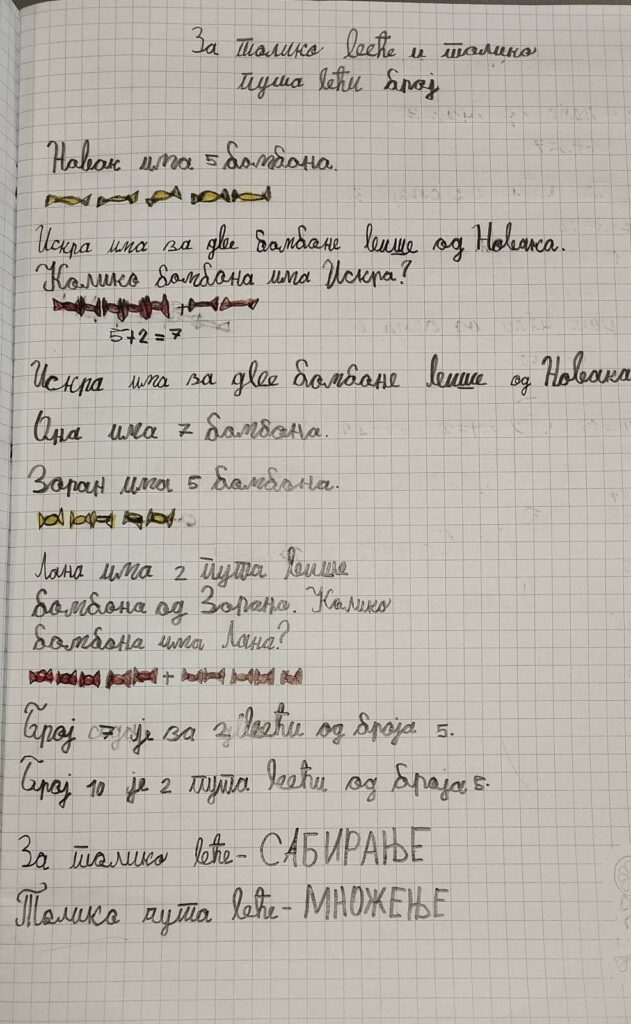 За толико већи и толико
пута већи број
Новак има 5 бомбона.
Искра има за две бомбоне више од Новака.
Колико бомбона има Искра?
+
5+2=7
Искра има за две бомбоне више од Новака
Она има 7 бомбона.
Зоран има 5 бомбона.
Лана има 2 пута више
бомбона од Зорана. Колико
бомбона има Лана?
+
Број 7 је за 2 већи од броја 5.
Број 10 је 2 пута већи од броја 5.
За толико веће- САБИРАЊЕ
Толико пута веће- МНОЖЕЊЕ